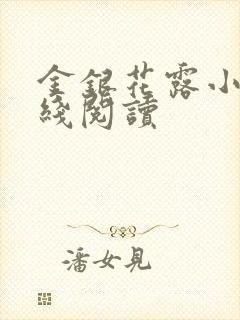 金銀花露小
綫閱讀
潘女見